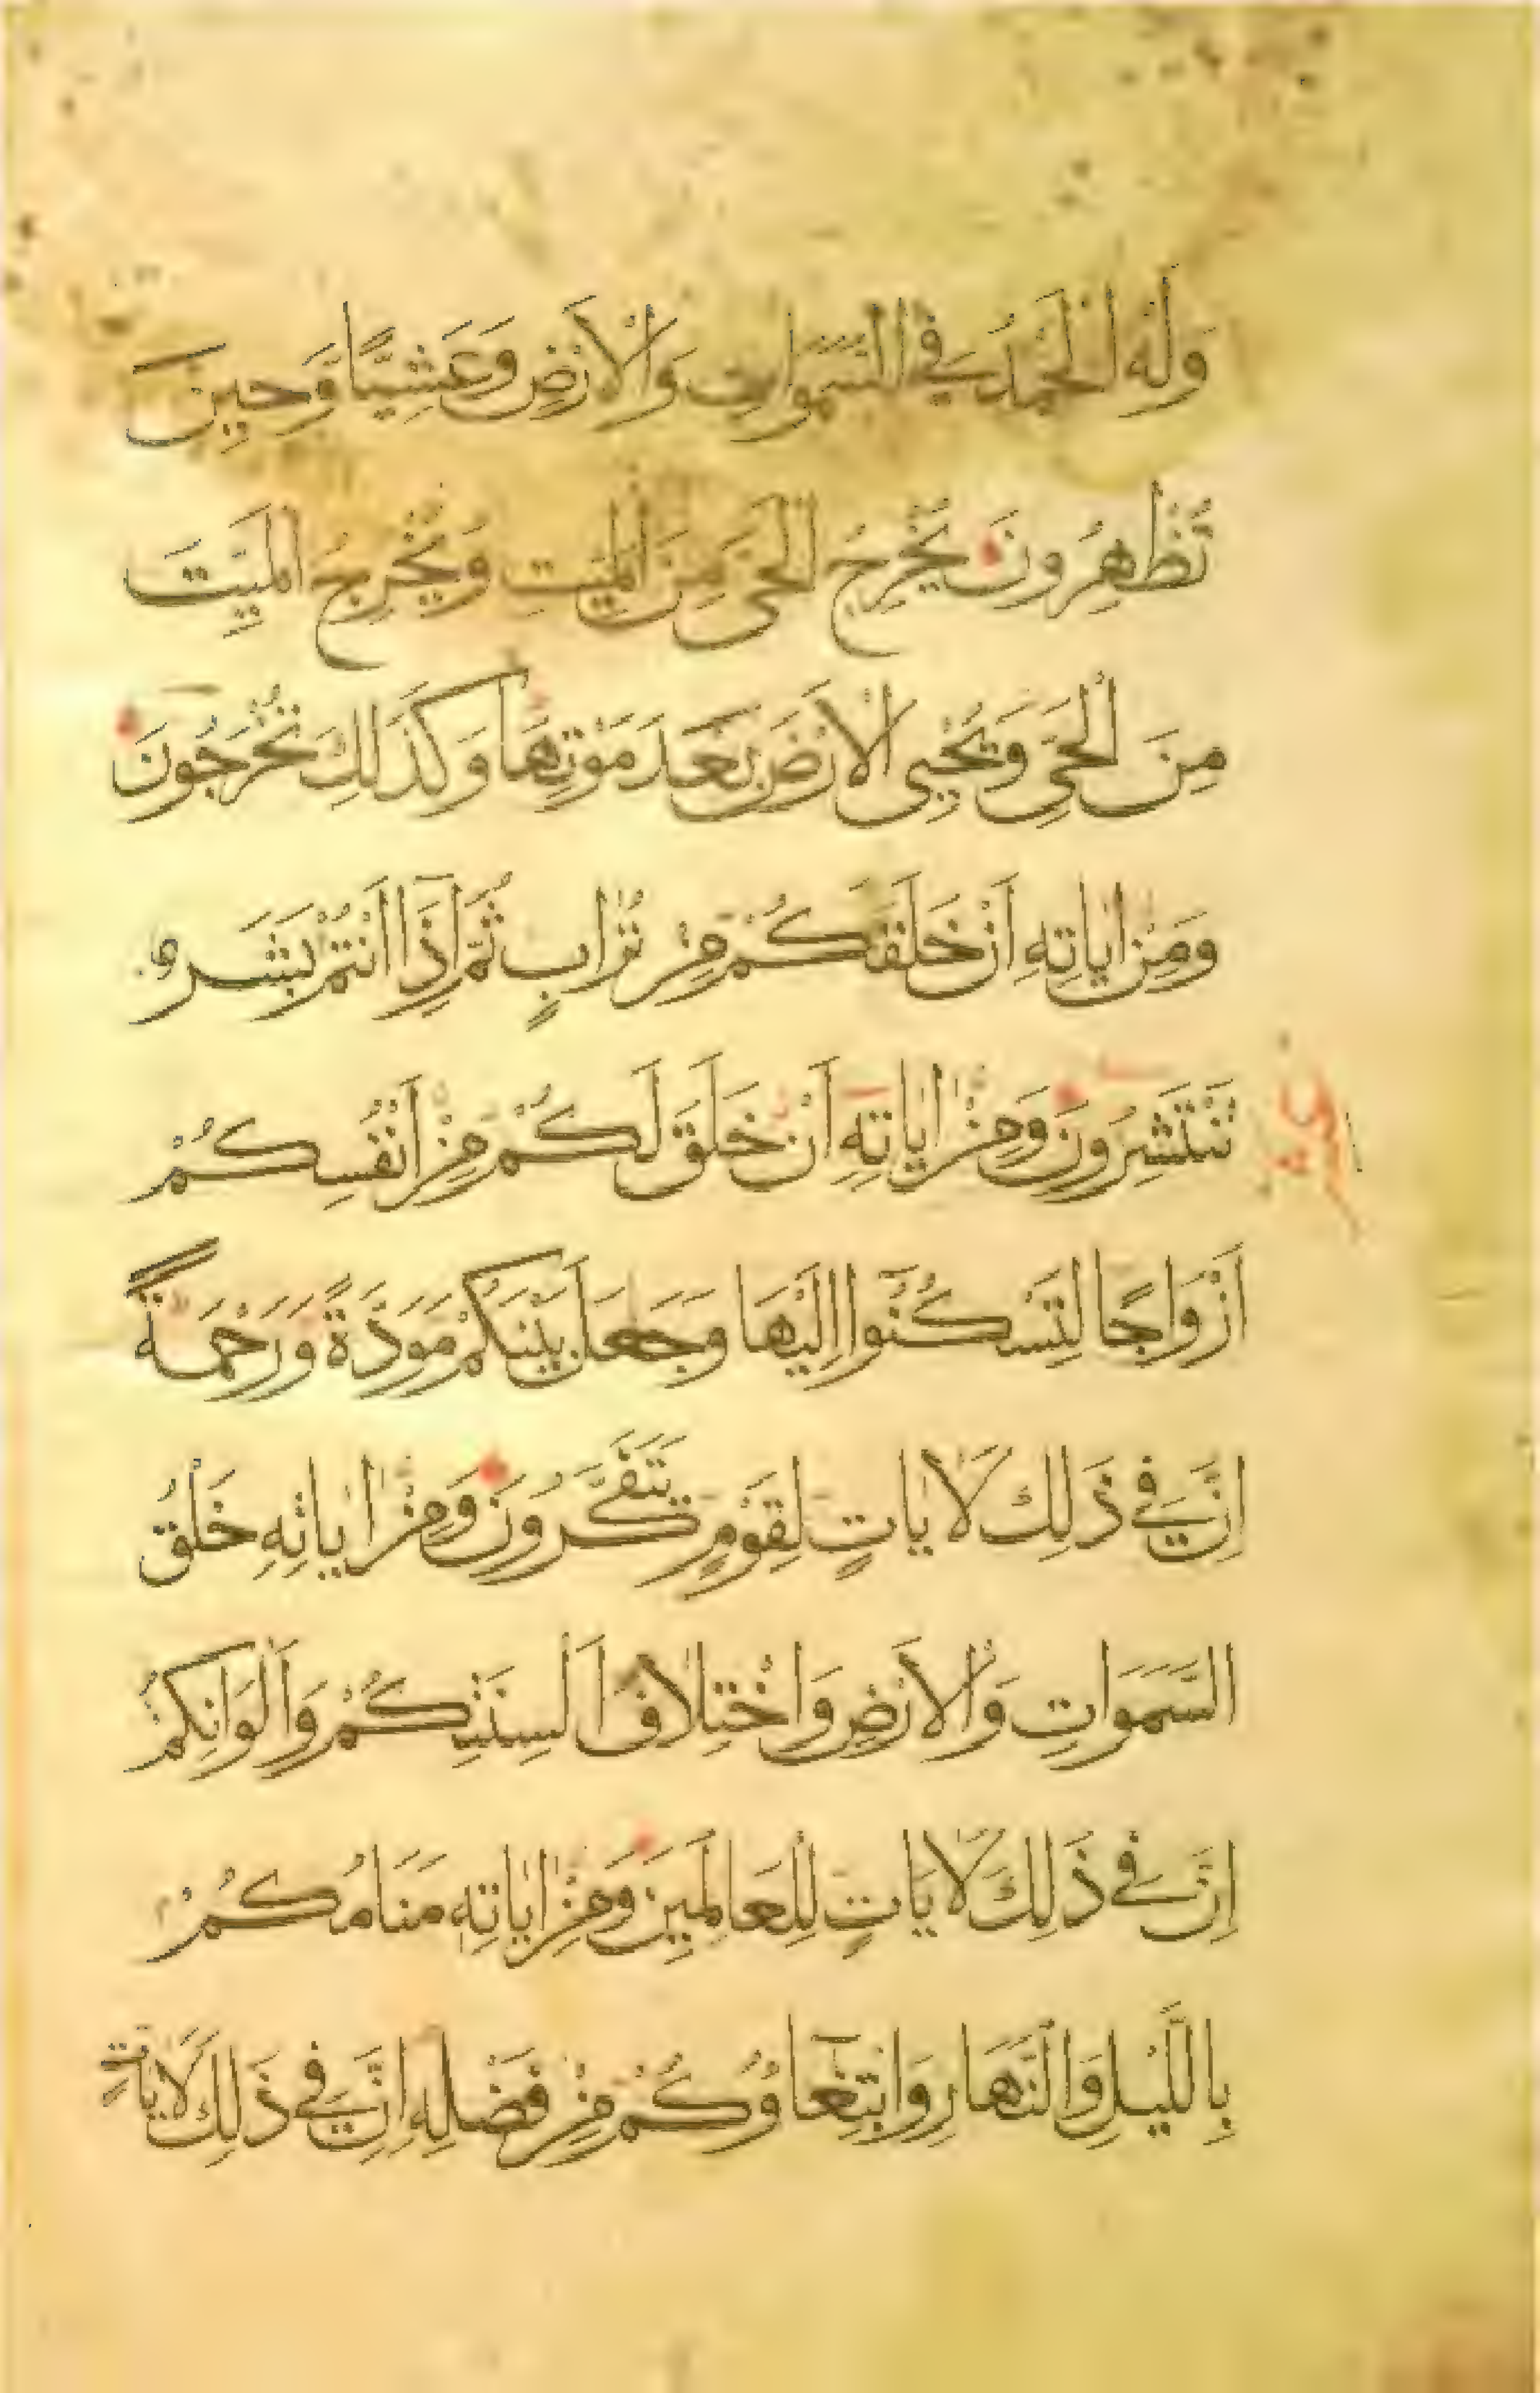 وَلَهُ الْحَمْدُ فِي السَّمَوَاتِ وَالْاَرْضِ وَعَشِيًّا وَّحِينَ
تُظْهِرُونَ يُخْرِجُ الْحَىَّ مِنَ الْمَيِّتِ وَيُخْرِجُ الْمَيِّتَ
مِنَ الْحَىِّ وَيُحْيِى الْاَرْضَ بَعْدَ مَوْتِهَا وَكَذَلِكَ تُخْرَجُونَ
وَمِنْ اٰيَاتِهِ اَنْ خَلَقَكُمْ مِنْ تُرَابٍ ثُمَّ اِذَآ اَنْتُمْ بَشَر
تَنْتَشِرُونَ وَمِنْ اٰيَاتِهِ اَنْ خَلَقَ لَكُمْ مِنْ اَنْفُسِكُمْ
اَزْوَاجًا لِتَسْكُنُوٓا اِلَيْهَا وَجَعَلَ بَيْنَكُمْ مَوَدَّةً وَرَحْمَةً
اِنَّ فِي ذَلِكَ لَاٰيَاتٍ لِقَوْمٍ يَتَفَكَّرُونَ وَمِنْ اٰيَاتِهِ خَلْقُ
السَّمَوَاتِ وَالْاَرْضِ وَاخْتِلَافُ اَلْسِنَتِكُمْ وَاَلْوَانِكُمْ
اِنَّ فِي ذَلِكَ لَاٰيَاتٍ لِلْعَالَمِينَ وَمِنْ اٰيَاتِهِ مَنَامُكُمْ
بِاللَّيْلِ وَالنَّهَارِ وَابْتِغَآؤُكُمْ مِنْ فَضْلِهِ اِنَّ فِي ذَلِكَ لَاٰيَاتٍ